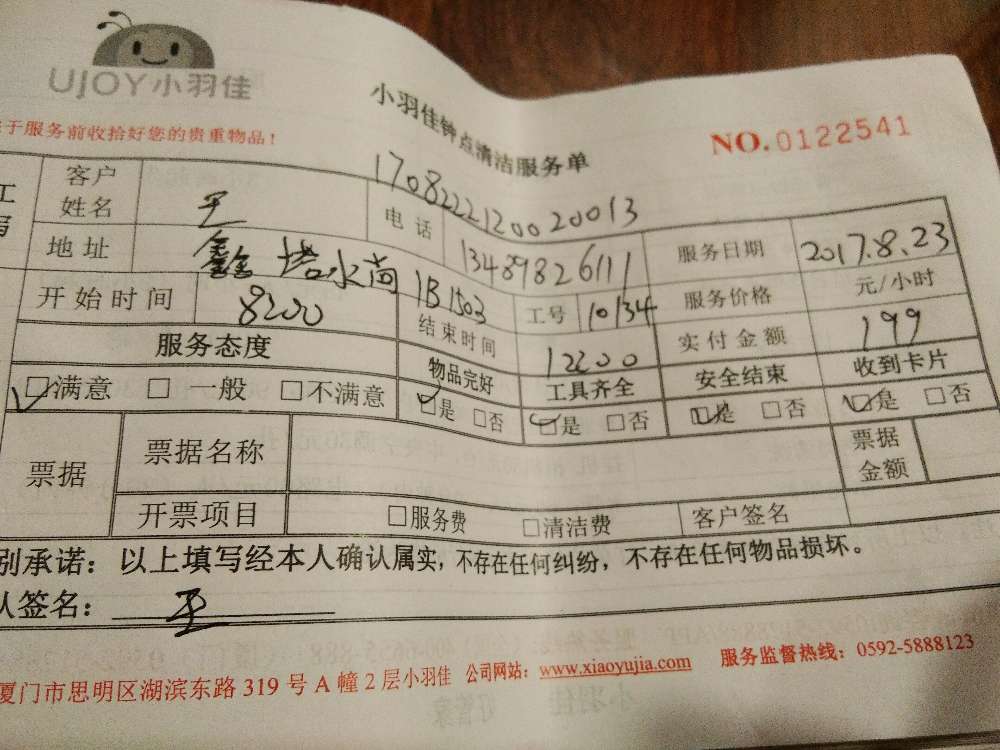 UJOY小羽佳
小羽佳钟点清洁服务单
NO.0122541
于服务前收拾好您的贵重物品！
17082221200020013
客户姓名 王 电话 13489826111 服务日期 2017.8.23
地址 鑫塔水尚 1B1503 工号 10134 服务价格 元/小时
开始时间 8:00 结束时间 12:00 实付金额 199
服务态度 物品完好 工具齐全 安全结束 收到卡片
☑满意 □一般 □不满意 ☑是 □否 ☑是 □否 ☑是 □否 ☑是 □否
票据 票据名称 票据金额
开票项目 □服务费 □清洁费 客户签名
别承诺：以上填写经本人确认属实，不存在任何纠纷，不存在任何物品损坏。
人签名： 王
厦门市思明区湖滨东路 319 号 A 幢 2 层小羽佳 公司网站：www.xiaoyujia.com 服务监督热线：0592-5888123